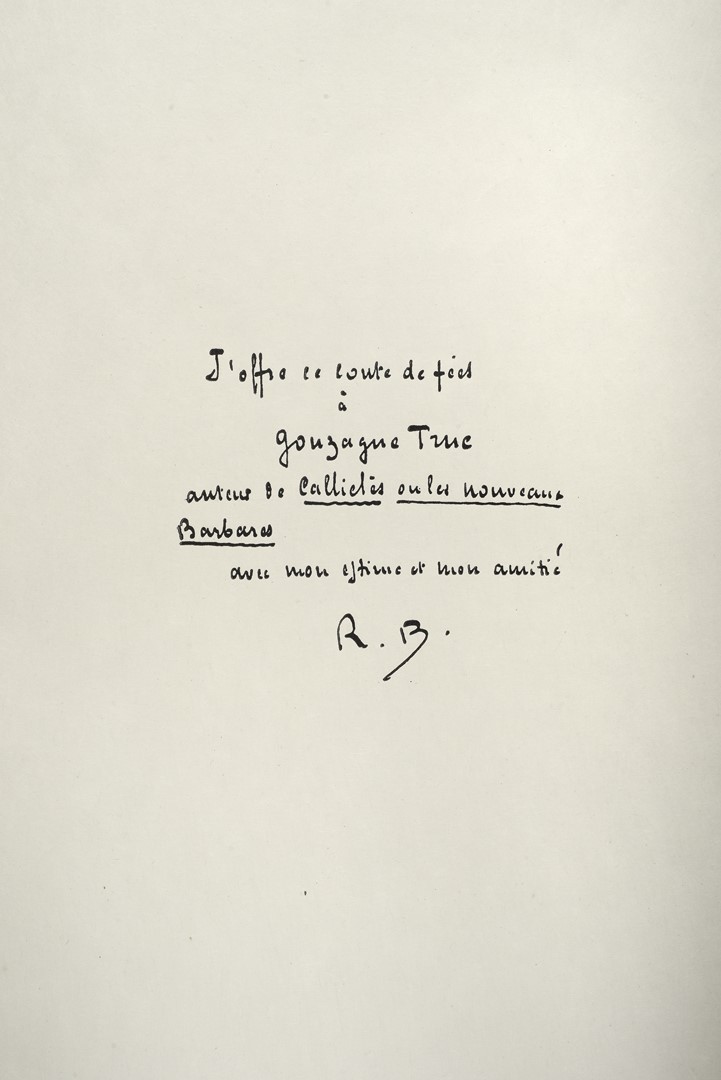 J'offre ce conte de fées
à
Gonzague Truc
auteur de Calliclès ou les nouveaux
Barbares
avec mon estime et mon amitié
R. B.